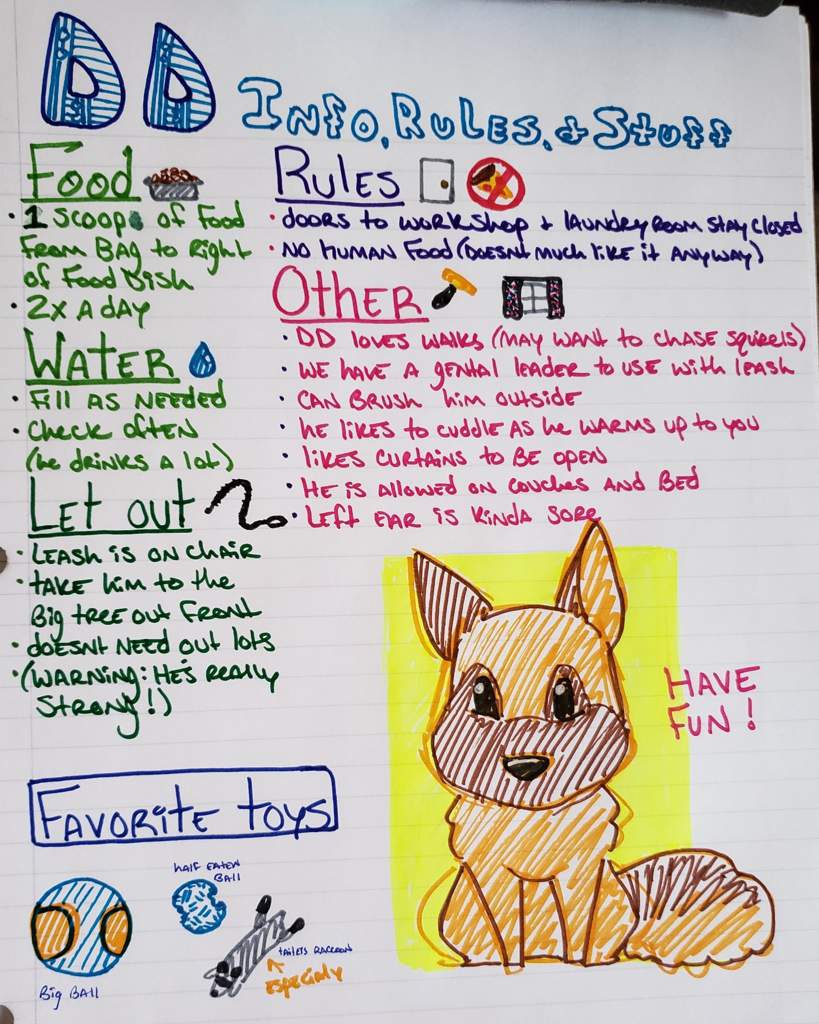 DD Info, Rules, & Stuff
Food
• 1 scoop of food
from bag to right
of food dish
• 2x a day
Water
• Fill as needed
• check often
(he drinks a lot)
Let out
• Leash is on chair
• take him to the
Big tree out front
• doesnt need out lots
• (Warning: He's really
strong!)
Rules
• doors to workshop + laundry room stay closed
• No human food (doesnt much like it anyway)
Other
• DD loves walks (may want to chase squirels)
• We have a gental leader to use with leash
• Can brush him outside
• he likes to cuddle as he warms up to you
• likes curtains to be open
• He is allowed on couches and bed
• Left ear is kinda sore
HAVE
FUN!
Favorite toys
Big Ball
half eaten
Ball
tailets raccoon
especialy